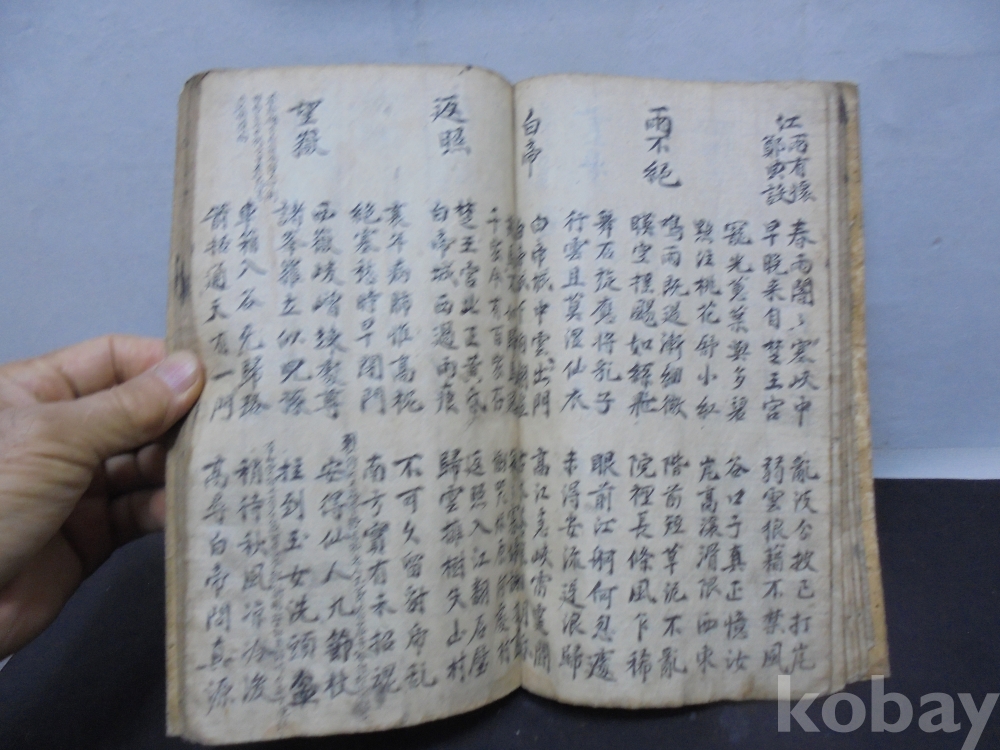 江雨有懷
鄭典設
春雨闇々塞峽中
亂波分披已打岸
早晚來自楚王宮
弱雲狼藉不禁風
寵光蕙葉與多碧
谷口子真正憶汝
點注桃花舒小紅
岸高瀼滑限西東
雨不絕
鳴雨既過漸細微
階前短草泥不亂
暎空搖颺如絲飛
院裡長條風乍稀
舞石旋應將乳子
眼前江舸何忽遽
行雲且莫濕仙衣
未得安流逆浪歸
白帝
白帝城中雲出門
高江急峽雷霆鬪
千家今有百家存
返照
楚王宮北正黃昏
返照入江翻石壁
白帝城西過雨痕
歸雲擁樹失山村
衰年病肺惟高枕
不可久留豺虎亂
絕塞愁時早閉門
南方實有未招魂
望嶽
西嶽崚嶒竦處尊
安得仙人九節杖
諸峯羅立似兒孫
拄到玉女洗頭盆
車箱入谷無歸路
稍待秋風凉冷後
箭栝通天有一門
高尋白帝問真源
kobay